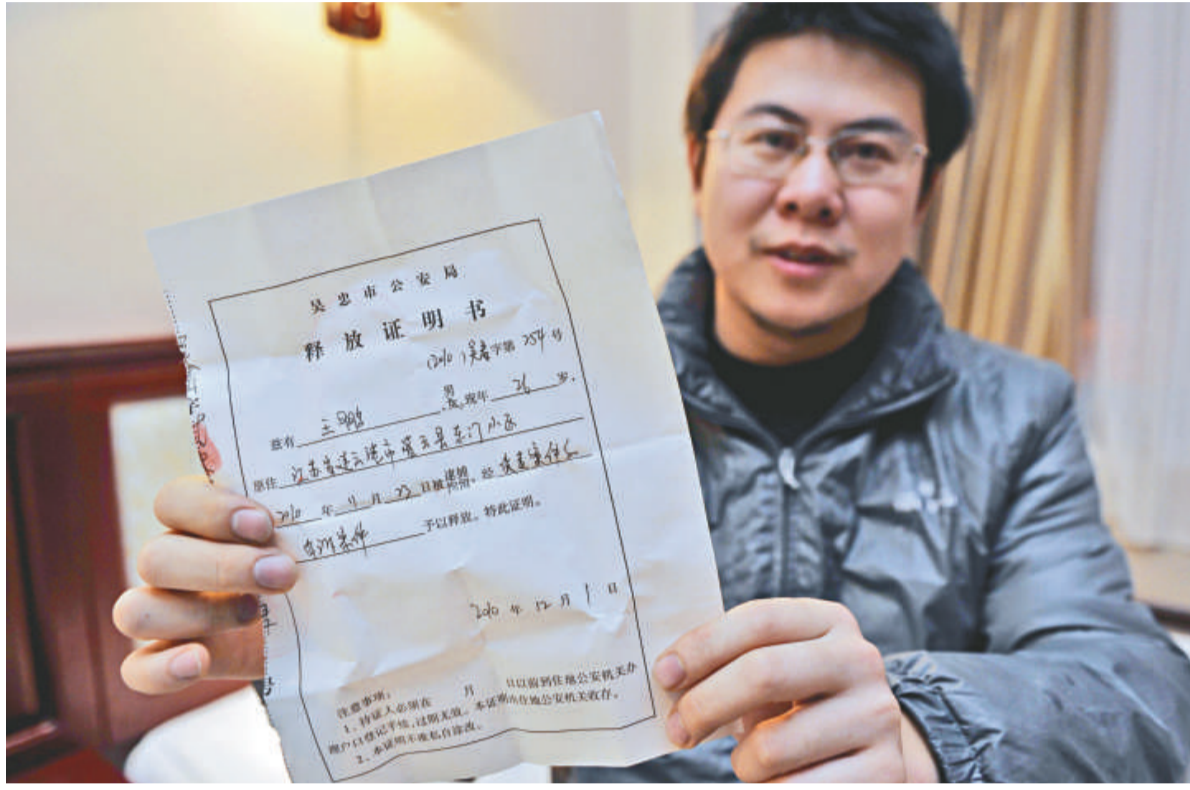 吴忠市公安局
释放证明书
(2010)吴看字第254号
兹有 王鹏 ,男 女,现年 26 岁,
原住 江苏省连云港市灌云县东门小区
2010 年 11 月 23 日被逮捕 拘留,经
予以释放。特此证明。
2010 年 12 月 1 日
注意事项:
1、持证人必须在 月 日以前到住地公安机关办
理户口登记手续,过期无效。本证明由住地公安机关收存。
2、本证明不准私自涂改。